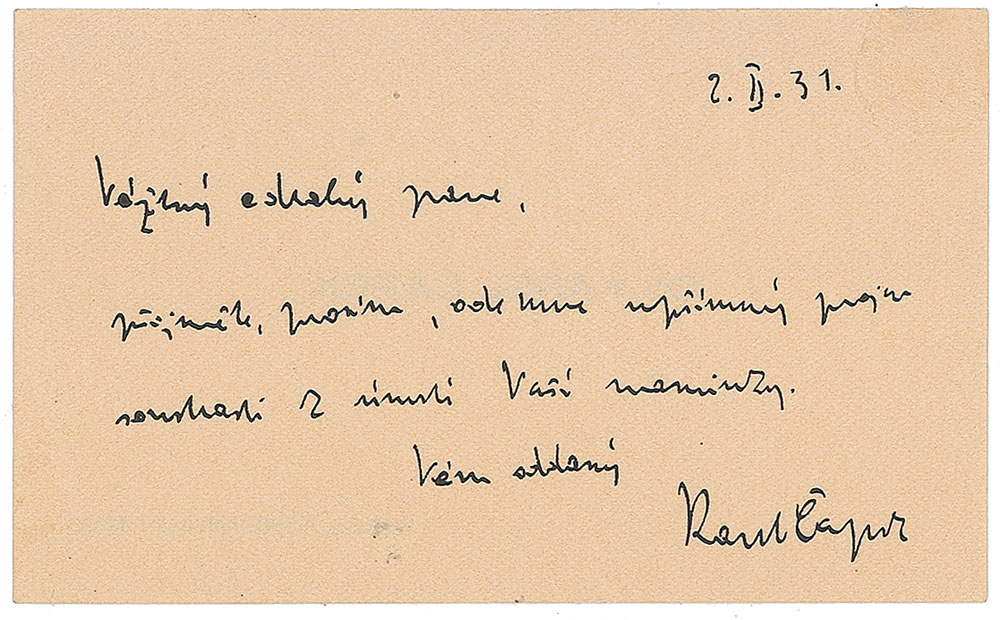 2. II. 31.
Vážený a drahý pane,
přijměte, prosím, ode mne upřímný projev
soustrasti z úmrtí Vaší maminky.
Vám oddaný
Karel Čapek